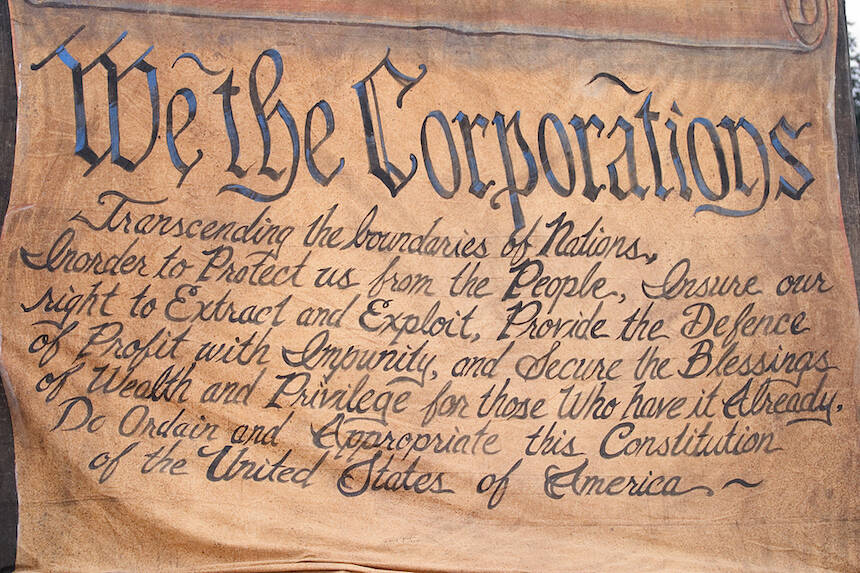 We the Corporations
Transcending the boundaries of Nations,
Inorder to Protect us from the People, Insure our
right to Extract and Exploit, Provide the Defence
of Profit with Impunity, and Secure the Blessings
of Wealth and Privilege for those Who have it Already.
Do Ordain and Appropriate this Constitution
of the United States of America ~